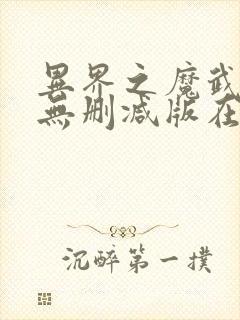 異界之魔武
無删减版在
沉醉第一撲